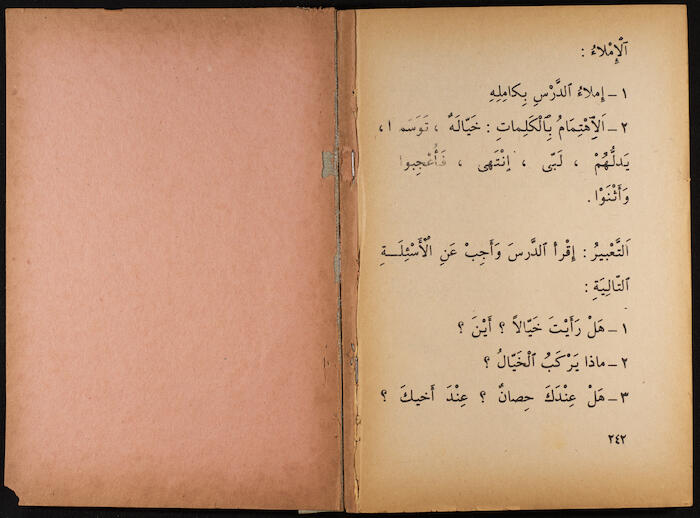 اَلْإِمْلاءُ :
١ – إِملاءُ الدَّرْسِ بِكامِلِهِ
٢ – اَلْاِهْتِمَامُ بِالْكَلِماتِ : خَيّالَةٌ ،
يَدلُّهُمْ ، لَبّى ، إِنْتَهى ، فَأُعْجِبوا
وَأَثْنَوْا .
اَلتَّعْبيرُ : إِقْرأ الدَّرسَ وَأَجِبْ عَنِ الْأَسْئِلَــةِ
التّالِيَةِ :
١ – هَلْ رَأَيْتَ خَيّالاً ؟ أَيْنَ ؟
٢ – ماذا يَرْكَبُ الْخَيّالُ ؟
٣ – هَلْ عِنْدَكَ حِصانٌ ؟ عِنْدَ أَخيكَ ؟
٢٤٢